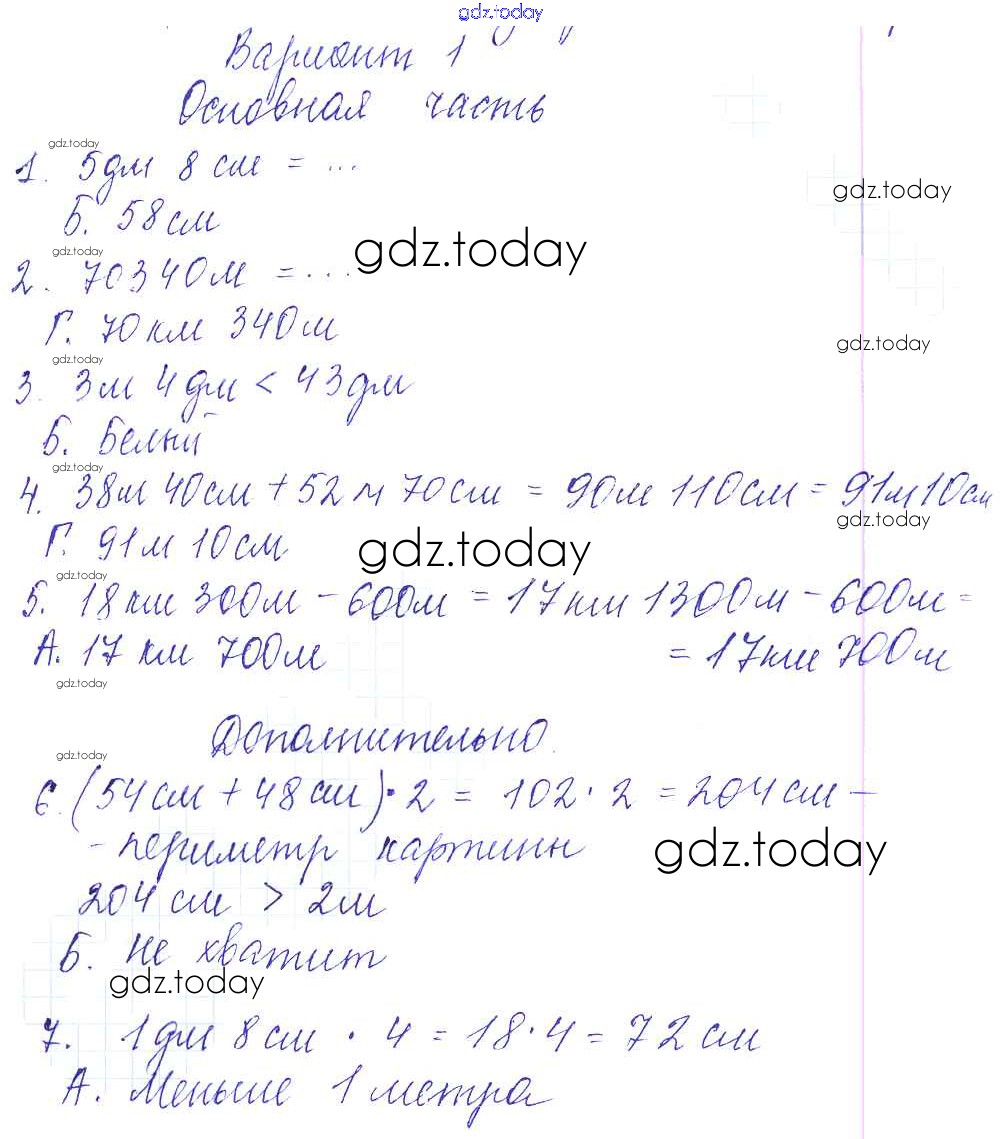 gdz.today
Вариант 1
Основная часть
gdz.today
1. 5дм 8 см = ...
gdz.today
Б. 58см
gdz.today
gdz.today
2. 70340м = ...
Г. 70 км 340м
gdz.today
gdz.today
3. 3м 4 дм < 43дм
Б. Белый
gdz.today
4. 38м 40см + 52 м 70см = 90м 110см = 91м10см
gdz.today
Г. 91м 10см
gdz.today
gdz.today
5. 18км 300м - 600м = 17км 1300м - 600м =
А. 17 км 700м = 17км 700м
gdz.today
Дополнительно.
gdz.today
6. (54см + 48см) · 2 = 102 · 2 = 204см -
- периметр картины
gdz.today
204 см > 2м
Б. Не хватит
gdz.today
7. 1 дм 8 см · 4 = 18 · 4 = 72 см
А. Меньше 1 метра